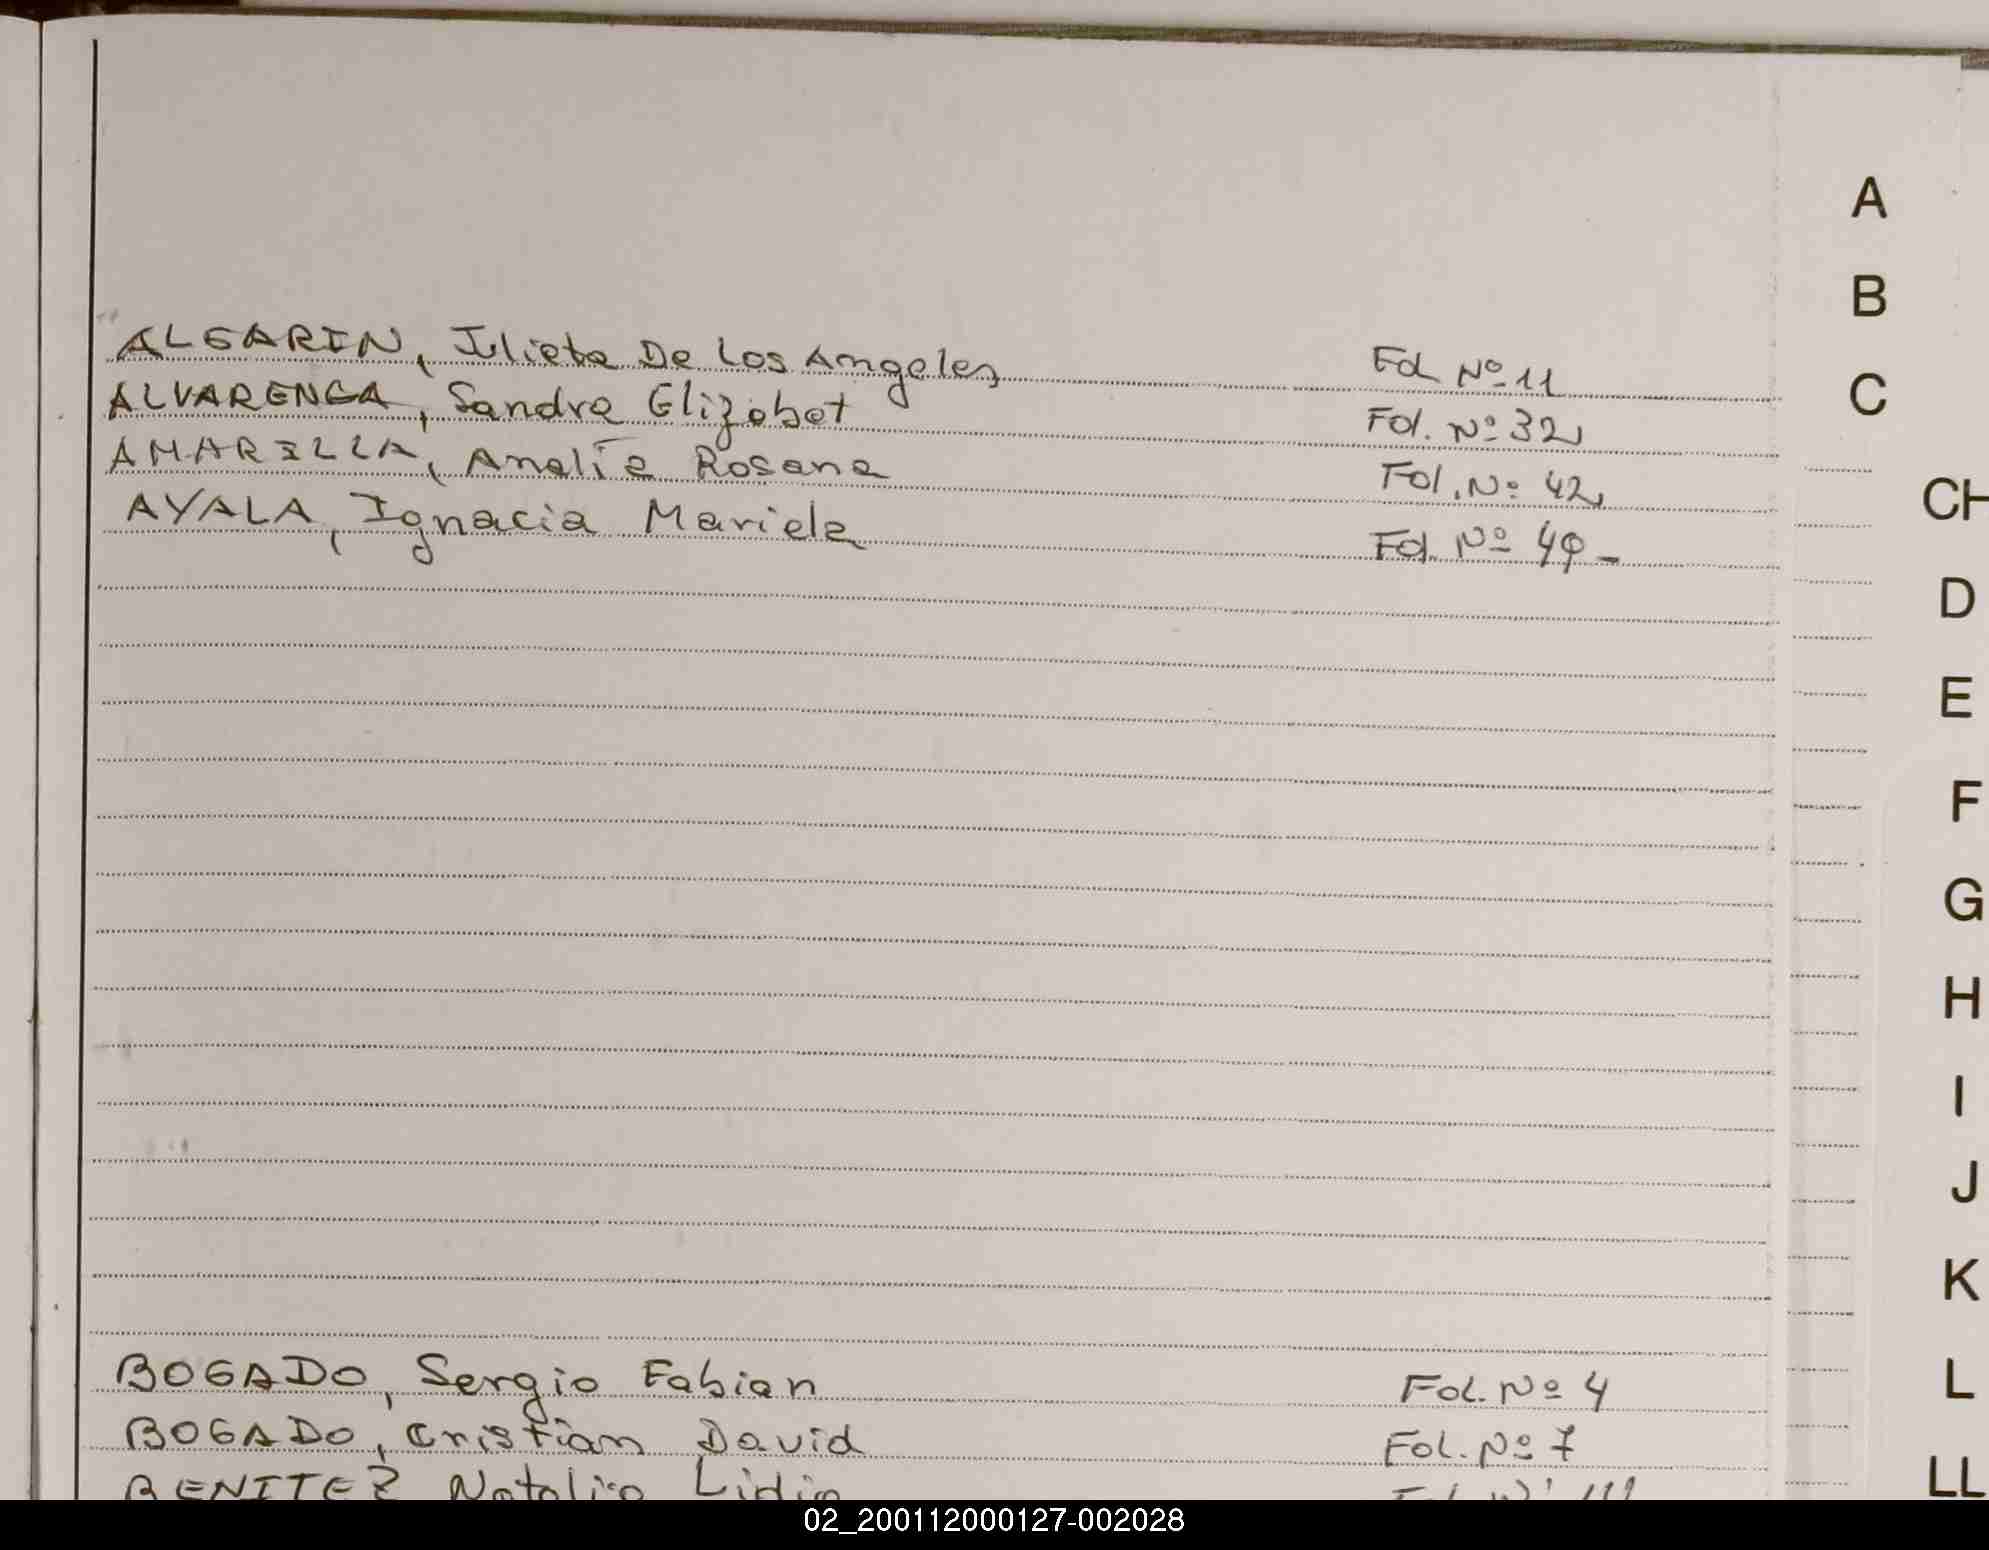 ALGARIN, Julieta De Los Angeles Fol Nº 11
ALVARENGA, Sandra Elizabet Fol. Nº 32
AMARILLA, Analía Rosana Fol. Nº 42
AYALA, Ignacia Mariela Fol. Nº 49-
BOGADO, Sergio Fabian Fol. Nº 4
BOGADO, Cristian David Fol. Nº 7
BENITEZ Natalia Lidia
A
B
C
CH
D
E
F
G
H
I
J
K
L
LL
02_200112000127-002028